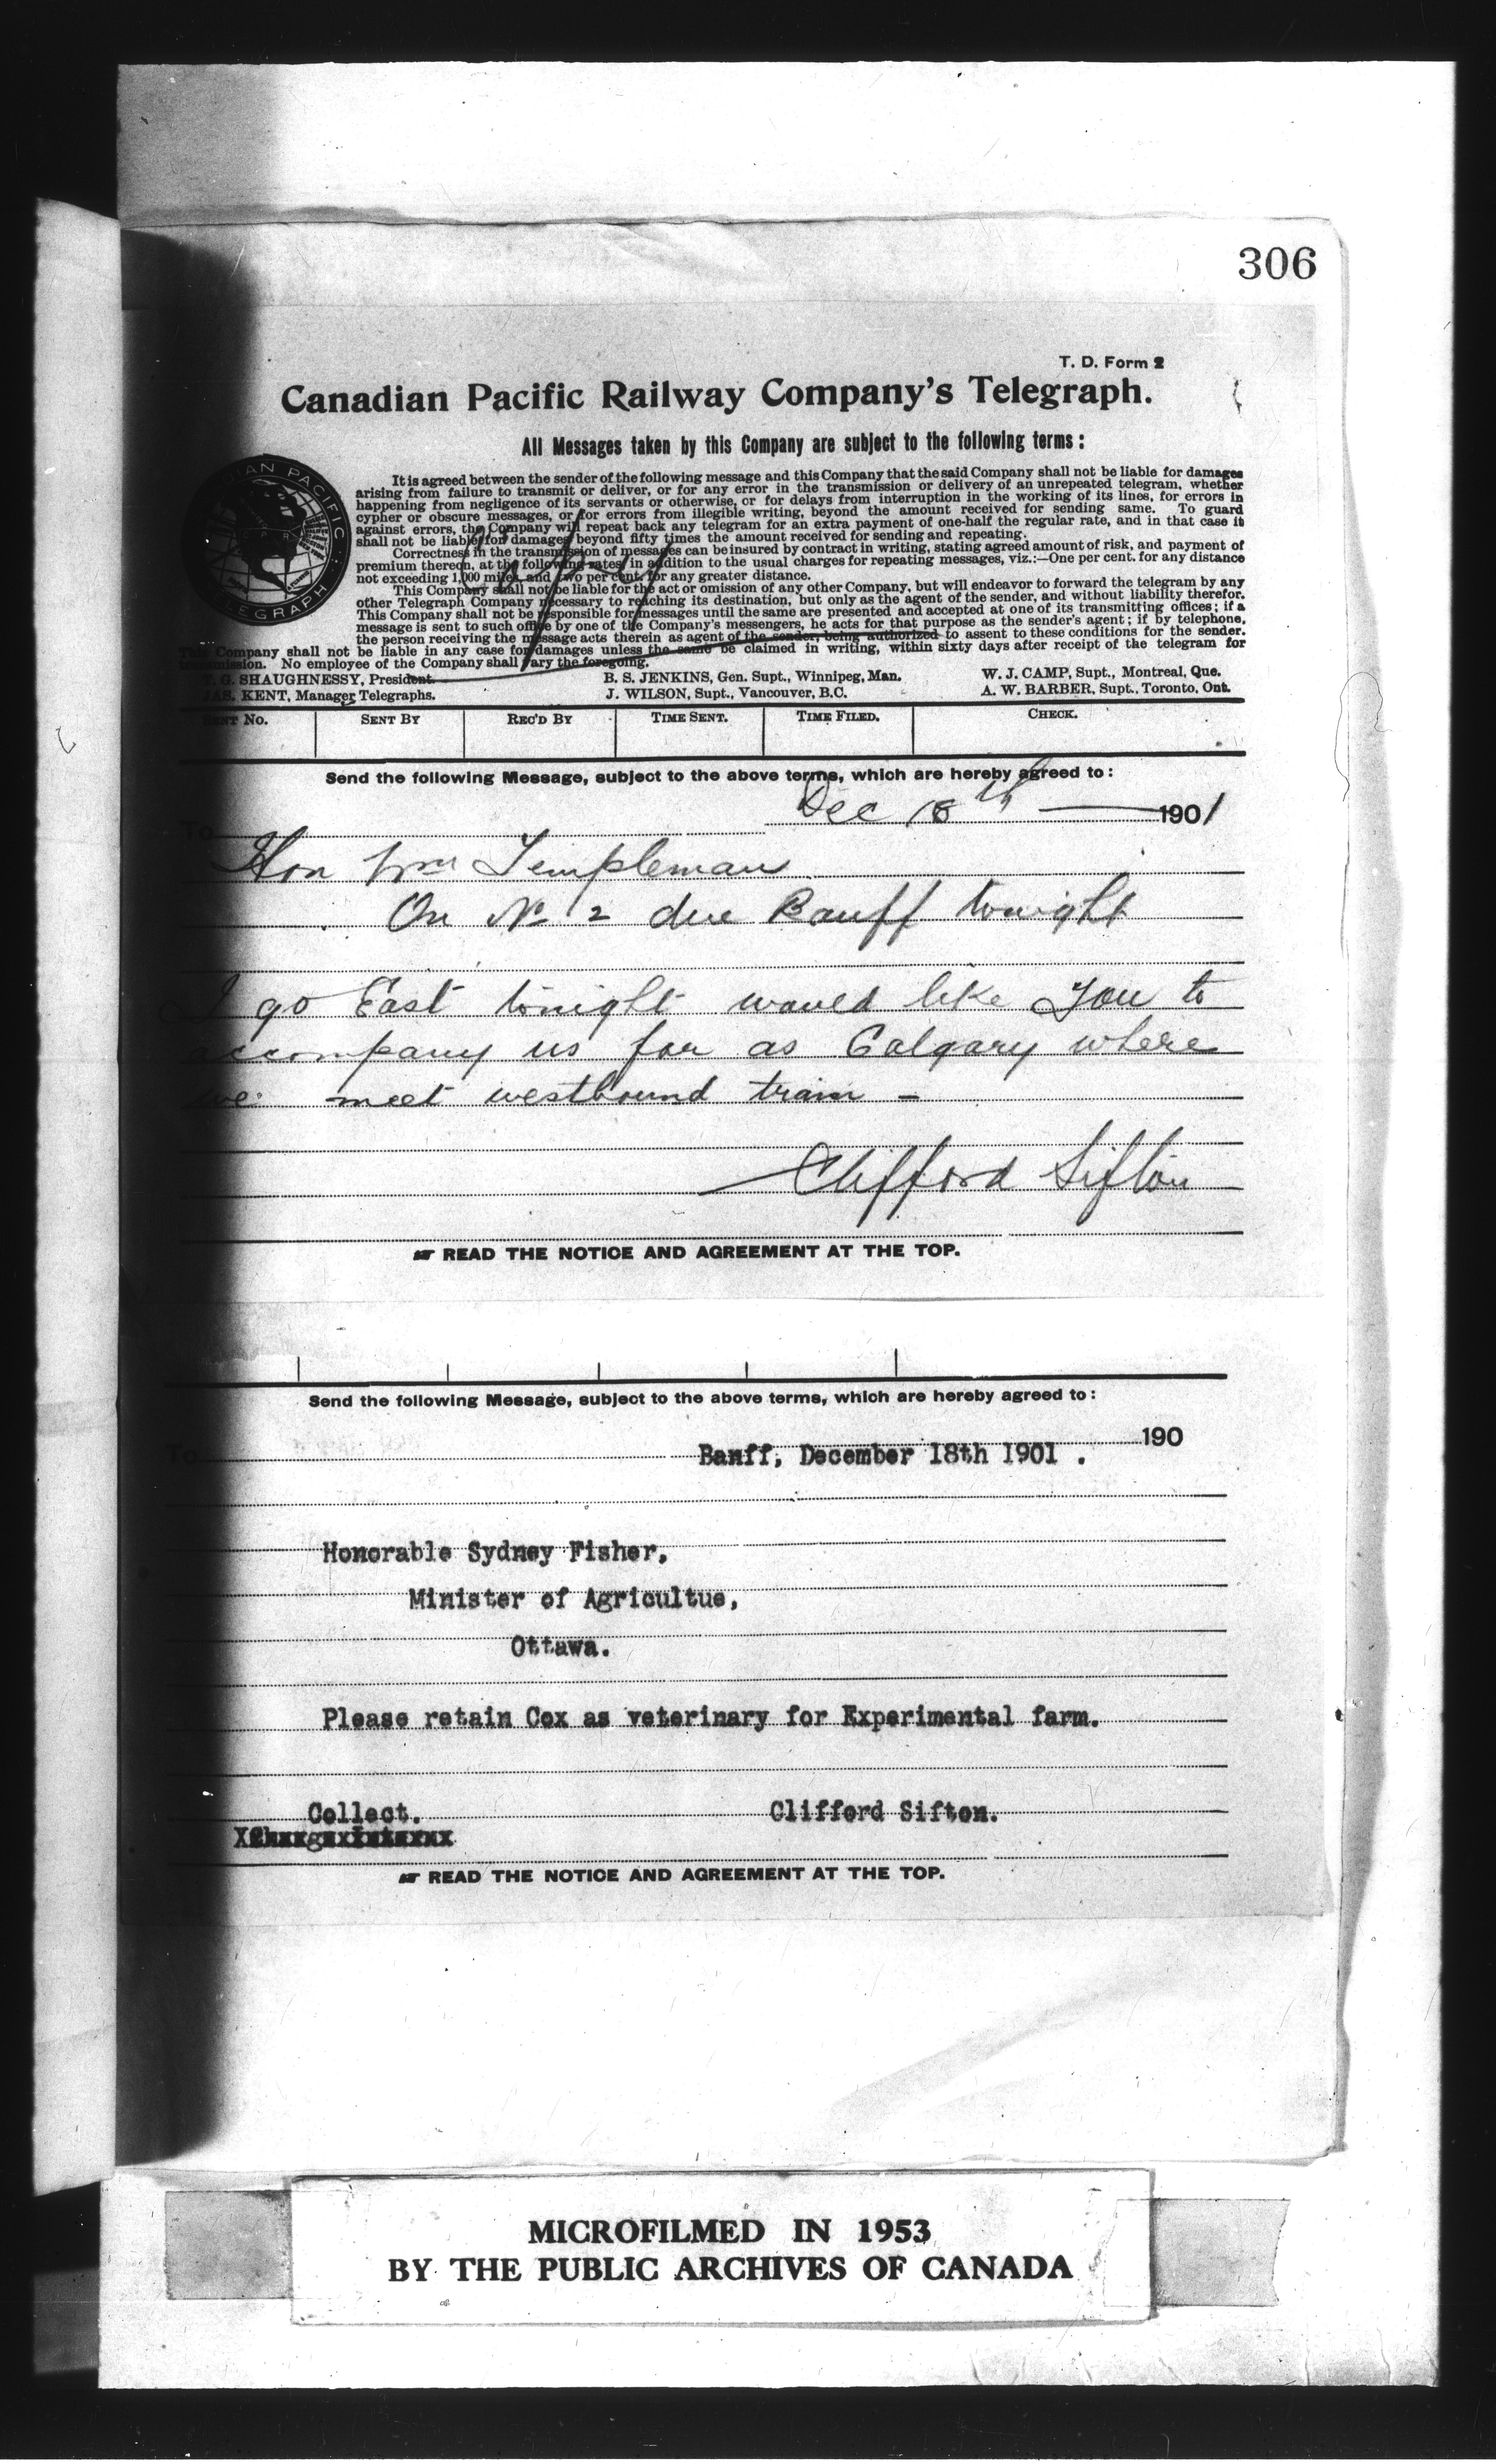 306
T. D. Form 2
Canadian Pacific Railway Company's Telegraph.
All Messages taken by this Company are subject to the following terms :
It is agreed between the sender of the following message and this Company that the said Company shall not be liable for damages
arising from failure to transmit or deliver, or for any error in the transmission or delivery of an unrepeated telegram, whether
happening from negligence of its servants or otherwise, or for delays from interruption in the working of its lines, for errors in
cypher or obscure messages, or for errors from illegible writing, beyond the amount received for sending same. To guard
against errors, the Company will repeat back any telegram for an extra payment of one-half the regular rate, and in that case it
shall not be liable for damages beyond fifty times the amount received for sending and repeating.
Correctness in the transmission of messages can be insured by contract in writing, stating agreed amount of risk, and payment of
premium thereon, at the following rates, in addition to the usual charges for repeating messages, viz.:—One per cent. for any distance
not exceeding 1,000 miles, and two per cent. for any greater distance.
This Company shall not be liable for the act or omission of any other Company, but will endeavor to forward the telegram by any
other Telegraph Company necessary to reaching its destination, but only as the agent of the sender, and without liability therefor.
This Company shall not be responsible for messages until the same are presented and accepted at one of its transmitting offices; if a
message is sent to such office by one of the Company's messengers, he acts for that purpose as the sender's agent; if by telephone,
the person receiving the message acts therein as agent of the sender, being authorized to assent to these conditions for the sender.
This Company shall not be liable in any case for damages unless the same be claimed in writing, within sixty days after receipt of the telegram for
transmission. No employee of the Company shall vary the foregoing.
CANADIAN PACIFIC
TELEGRAPH
C P R
T. G. SHAUGHNESSY, President. B. S. JENKINS, Gen. Supt., Winnipeg, Man. W. J. CAMP, Supt., Montreal, Que.
JAS. KENT, Manager Telegraphs. J. WILSON, Supt., Vancouver, B.C. A. W. BARBER, Supt., Toronto, Ont.
SENT NO. SENT BY REC'D BY TIME SENT. TIME FILED. CHECK.
Send the following Message, subject to the above terms, which are hereby agreed to :
Dec 18th 1901
To
Hon Wm Templeman
On No 2 due Banff tonight
I go East tonight would like you to
accompany us far as Calgary where
we meet westbound train -
Clifford Sifton
READ THE NOTICE AND AGREEMENT AT THE TOP.
Send the following Message, subject to the above terms, which are hereby agreed to :
190
To
Banff, December 18th 1901 .
Honorable Sydney Fisher,
Minister of Agricultue,
Ottawa.
Please retain Cox as veterinary for Experimental farm.
Collect. Clifford Sifton.
READ THE NOTICE AND AGREEMENT AT THE TOP.
MICROFILMED IN 1953
BY THE PUBLIC ARCHIVES OF CANADA